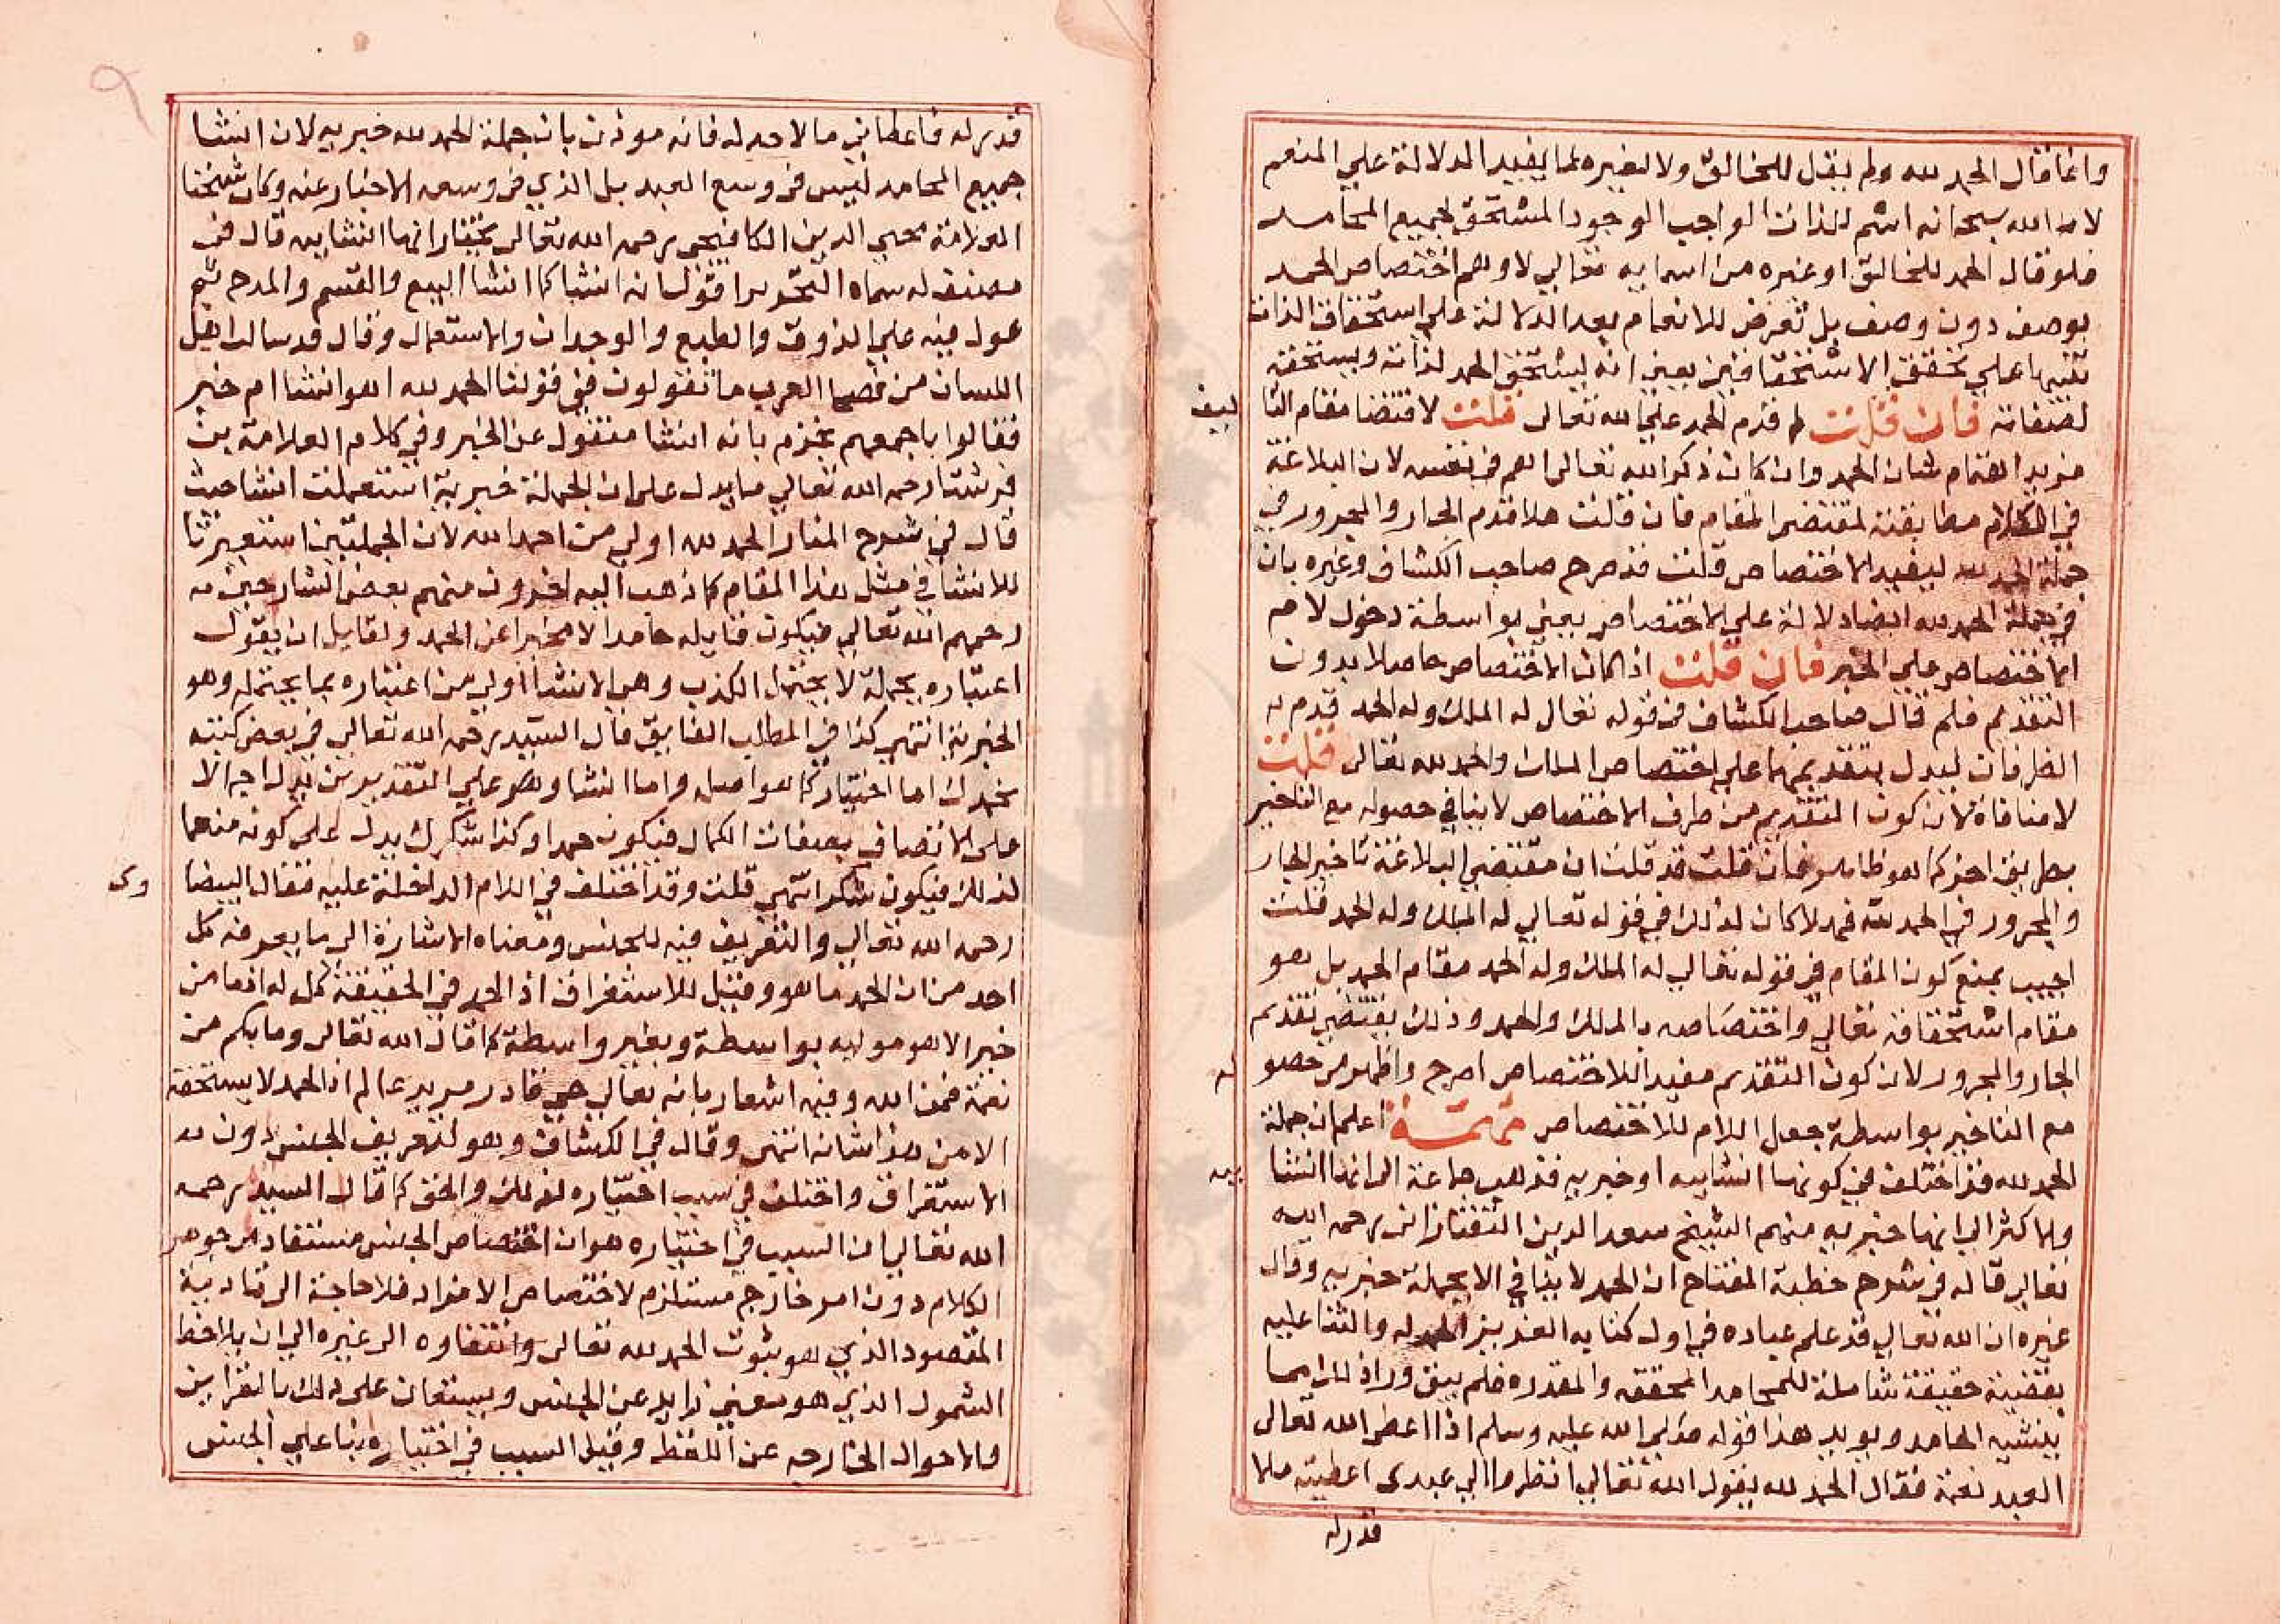 وانما قال الحمد لله ولم يقل للخالق ولا لغيره لما يفيد الدلالة علي المنعم
لان الله سبحانه اسم للذات الواجب الوجود المستحق لجميع المحامد
فلو قال الحمد للخالق او غيره من اسمايه تعالي لاوهم اختصاص الحمد
بوصف دون وصف بل تعرض للانعام بعد الدلالة علي استحقاق الذات
تنبيها علي تحقق الاستحقاقين يعني انه يستحق الحمد لذاته ويستحقه
لصفاته فان قلت لم قدم الحمد علي الله تعالى قلت لاقتضا مقام التا
ليف
مزيد اهتمام شان الحمد وان كان ذكر الله تعالى اهم في نفسه لان البلاغة
في الكلام مطابقته لمقتضى المقام فان قلت هلا قدم الجار والمجرور في
جملة الحمد لله ليفيد الاختصاص قلت قد صرح صاحب الكشاف وغيره بان
في جملة الحمد لله ايضا دلالة علي الاختصاص يعني بواسطة دخول لام
الاختصاص علي الخبر فان قلت اذا كان الاختصاص حاصلا بدون
التقديم فلم قال صاحب الكشاف في قوله تعالى له الملك وله الحمد قدم له
الظرفان ليدل بتقديمهما علي اختصاص الملك والحمد لله تعالى قلت
لا منافاة لان كون التقديم من طرف الاختصاص لا ينافي حصوله مع التاخير
بطريق اخر كما هو ظاهر فان قلت قد قلت ان مقتضي البلاغة تاخير الجار
والمجرور في الحمد لله فهلا كان لذلك في قوله تعالي له الملك وله الحمد قلت
اجيب بمنع كون المقام في قوله تعالي له الملك وله الحمد مقام الحمد بل هو
مقام استحقاقه تعالي واختصاصه بالملك والحمد وذلك يقتضي تقديم
الجار والمجرور لان كون التقديم مفيدا للاختصاص اصرح واظهر من حصو
له
مع التاخير بواسطة جعل اللام للاختصاص تتمة اعلم ان جملة
الحمد لله قد اختلف في كونها انشاييه او خبريه فذهب جماعة الى انها انشا
ييه
والاكثر الي انها خبريه منهم الشيخ سعد الدين التفتازاني رحمه الله
تعالى قاله في شرح خطبة المفتاح ان الحمد لا يتاتي الا بجملة خبريه وقال
غيره ان الله تعالي قد علم عباده في اول كتابه العزيز الحمد له والثنا عليه
بقضية حقيقة شاملة للمحامد المحققه والمقدره فلم يبق ورا ذلك ما
ينشيه الحامد ويويد هذا قوله صلى الله عليه وسلم اذا اعطى الله تعالى
العبد نعمة فقال الحمد لله يقول الله تعالي انظروا الي عبدى اعطيته مالا
قدر له
قدر له فاعطاني مالا حد له فانه موذن بان جملة الحمد لله خبريه لان انشا
جميع المحامد ليس في وسع العبد بل الذي في وسعه الاخبار عنه وكان شيخنا
العلامة محيي الدين الكافيجي رحمه الله تعالى يختار انها انشاييه قال في
مصنف له سماه التحرير اقول انه انشا كما انشا البيع والقسم والمدح ثم
عول فيه علي الذوق والطبع والوجدان والاستعمال وقال قد سالت اهل
اللسان من فصحا العرب ما تقولون في قولنا الحمد لله اهو انشا ام خبر
فقالوا باجمعهم نجزم بانه انشا منقول عن الخبر وفي كلام العلامة بن
فرشتا رحمه الله تعالي ما يدل على ان الجملة خبرية استعملت انشا حيث
قال في شرح المنار الحمد لله اولي من احمد الله لان الجملتين استعيرتا
للانشا في مثل هذا المقام كما ذهب اليه اخرون منهم بعض الشارحين له
رحمهم الله تعالي فيكون قايله حامدا لا مخبرا عن الحمد ولقايل ان يقول
اعتباره بجملة لا يحتمل الكذب وهي الانشا اولي من اعتباره بما يحتمله وهو
الخبرية انتهى كذا في المطلب الفايق قال السيد رحمه الله تعالى في بعض كتبه
نحمدك اما اخبار كما هو اصله واما انشا وهو علي التقديرين يدل اجمالا
على الاتصاف بصفات الكمال فيكون حمدا وكذا شكرك يدل على كونه منعما
لذلك فيكون شكرا انتهي قلت وقد اختلف في اللام الداخلة عليه فقال البيضا
وى
رحمه الله تعالي والتعريف فيه للجنس ومعناه الاشارة الي ما يعرفه كل
احد من ان الحمد ما هو وقيل للاستغراق اذ الحمد في الحقيقة كل له اذ ما من
خير الا هو موليه بواسطة وبغير واسطة كما قال الله تعالى وما بكم من
نعمة فمن الله وفيه اشعار بانه تعالي حي قادر مريد عالم اذ الحمد لا يستحقه
الا من هذا شانه انتهى وقال في الكشاف وهو لتعريف الجنس دون له
الاستغراق واختلف في سبب اختياره لذلك والحق كما قال السيد رحمه
الله تعالي ان السبب في اختياره هو ان اختصاص الجنس مستفاد من جوهر
الكلام دون امر خارج مستلزم لاختصاص الافراد فلا حاجة الى تادية
المقصود الذي هو ثبوت الحمد لله تعالى وانتفاوه الى غيره الي ان يلاحظ
الشمول الذي هو معني زايد عن الجنس ويستعان على ذلك بالقراين
والاحوال الخارجه عن اللفظ وقيل السبب في اختياره بنا علي الجنس